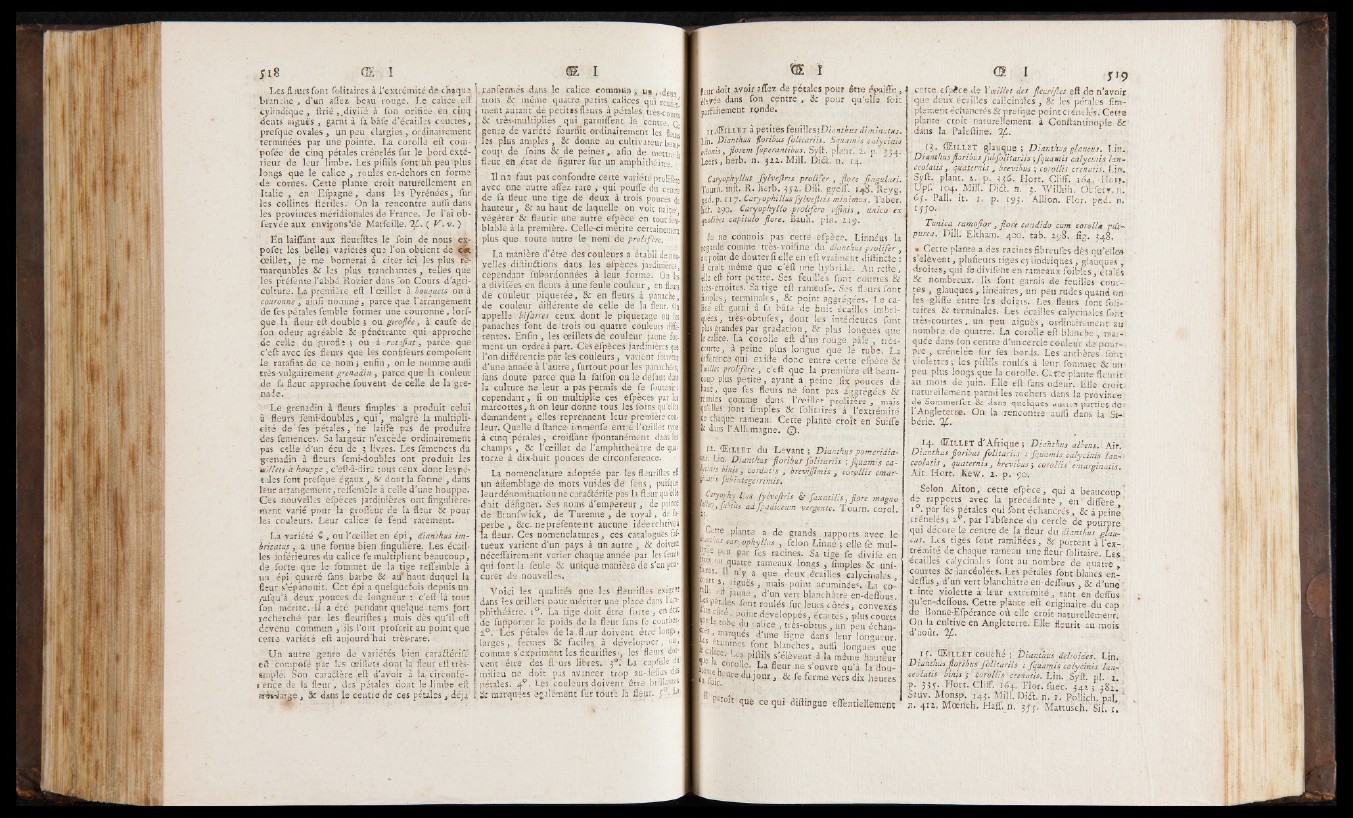 518 Œ I
Les fleurs font folitaires à l'extrémité de chaque
branche, d'un affez beau rouge. Le calice eft
cylindrique, ftrié, divifé à fon orifice en cinq
dents aiguës, garni à fa bafe d'écailles courtes,
prefque ovales, un peu élargies, ordinairement
terminées par une pointe. La corolle eft com-
pofée de cinq pétales crénelés fur le bord exté-
rieur de leur limbe. Les piftils font un peu plus
longs que le calice, roulés en-dehors en forme
de cornes. Cette plante croît naturellement en
Italie, en Efpagne, dans les Pyrénées, fur
les collines ftériles. On la rencontre auffi dans
les provinces méridionales de France. Je l'ai ob-
fervée aux environs de Marfeille. ♃. (V. v.)
En laiffant aux fleuriftes le foin de nous ex-
pofer les belles variétés que l'on obtient de cet
œillet, je me bornerai à citer ici les plus re-
marquables & les plus tranchantes, telles que
les préfente l'abbé Rozier dans fon Cours d'agri-
culture. La première eft l'œillet à bouquets ou à
couronne, ainfi nommé, parce que l'arrangement
de fes pétales femble former une couronne, lorf-
que la fleur eft double; ou giroflée, à caufe de
fon odeur agréable & pénétrante qui approche
de celle du girofle; ou à ratafiat, parce que
c'eft avec fes fleurs que les confifeurs compofent
le ratafiat de ce nom; enfin, on le nomme auffi
très-vulgairement grenadin, parce que la couleur
de fa fleur approche fouvent de celle de la gre-
nade.
Le grenadin à fleurs fimples a produit celui
à fleurs femi-doubles, qui, malgré la multipli-
cité de fes pétales, ne laiffe pas de produire
des femences. Sa largeur n'excède ordinairement
pas celle d'un écu de 3 livres. Les femences du
grenadin à fleurs femi-doubles ont produit les
œillets à houppe, c'eft-à-dire tous ceux dont les pé-
tales font prefque égaux, & dont la forme, dans
leur arrangement, reffemble à celle d'une houppe.
Ces nouvelles efpèces jardinières ont fingulière-
ment varié pour la groffeur de la fleur & pour
les couleurs. Leur calice fe fend rarement.
La variété C, ou l'œillet en épi, dianthus im-
bricatus, a une forme bien fingulière. Les écail-
les inférieures du calice fe multiplient beaucoup,
de forte que le fommet de la tige reffemble à
un épi quarré fans barbe & au haut duquel la
fleur s'épanouit. Cet épi a quelquefois depuis un
jufqu'à deux pouces de longueur: c'eft là tout
fon mérite. Il a été pendant quelque tems fort
recherché par les fleuriftes; mais dès qu'il eft
devenu commun, ils l'ont profcrit au point que
cette variété eft aujourd'hui très-rare.
Un autre genre de variétés bien caractérifé
eft compofé par les œillets dont la fleur eft très-
ample. Son caractère eft d'avoir à la circonfé-
rence de la fleur, des pétales dont le limbe eft
très-large, & dans le centre de ces pétales, déjà
Œ I
renfermés dans le calice commun, un, deux,
trois & même quatre petits calices qui
ment autant de petites fleurs à pétales très-courts
& très-multipliés qui garniffent le centre. Ce
genre de variété fournit ordinairement les fleurs
les plus amples, & donne au cultivateur beau-
coup de foins & de peines, afin de mettre la
fleur en état de figurer fur un amphithéâtre.
Il ne faut pas confondre cette variété prolifère
avec une autre affez rare, qui pouffe du centre
de fa fleur une tige de deux à trois pouces de
hauteur, & au haut de laquelle on voit naître,
végéter & fleurir une autre efpèce en tout fem-
blable à la première. Celle-ci mérite certainement
plus que toute autre le nom de prolifère.
La manière d'être des couleurs a établi de nou-
velles diftinctions dans les efpèces jardinières,
cependant fubordonnées à leur forme. On les
a divifées en fleurs à une feule couleur, en fleurs
de couleur piquetée, & en fleurs à panache,
de couleur différente de celle de la fleur. On
appelle bifarres ceux dont le piquetage ou les
panaches font de trois ou quatre couleurs diffé-
rentes. Enfin, les œillets de couleur jaune for-
ment un ordre à part. Ces efpèces jardinières que
l'on différencie par les couleurs, varient fouvent
d'une année à l'autre, furtout pour les panaches,
fans doute parce que la faifon ou le défaut dans
la culture ne leur a pas permis de fe foutenir:
cependant, fi on multiplie ces efpèces par les
marcottes, fi on leur donne tous les foins qu'elles
demandent, elles reprennent leur première cou-
leur. Quelle diftance immenfe entre l'œillet
à cinq pétales, croiffant fpontanément dans les
champs, & l'œillet de l'amphithéâtre de qua-
torze à dix-huit pouces de circonférence.
La nomenclature adoptée par les fleuriftes eft
un affemblage de mots vuides de fens, puifque
leur dénomination ne caractérife pas la fleur qu'elle
doit défigner. Ses noms d'empereur, de prince
de Brunfwick, de Turenne, de royal, de fu-
perbe, &c. ne préfentent aucune idée relative à
la fleur. Ces nomenclatures, ces catalogues faf-
tueux varient d'un pays à un autre, & doivent
néceffairement varier chaque année par les femis
qui font la feule & unique manière de s'en pro-
curer de nouvelles.
Voici les qualités que les fleuriftes exigent
dans les œillets pour mériter une place dans l'am-
phithéâtre. 1°. La tige doit être forte, en état
de fupporter le poids de la fleur fans fe courber.
2°. Les pétales de la fleur doivent être longs,
larges, fermes & faciles à développer, ou,
comme s'expriment les fleuriftes, les fleurs doi-
vent être des fleurs libres. 3°. La capfule du
milieu ne doit pas avancer trop au-deffus des
pétales. 4°. Les couleurs doivent être brillantes
& marquées également fur toute la fleur. 5°. La
Œ I
fleur doit avoir affez de pétales pour être épaiffie,
élevée dans fon centre, & pour qu'elle foit
parfaitement ronde.
11. ŒILLET à petites feuilles; Dianthus diminutus.
Lin. Dianthus floribus folitariis. Squamis calycinis
octonis, florem fuperantibus. Syft. plant. 2. p. 334.
Leers, herb. n. 322. Mill. Dict. n. 14.
Caryophyllus fylveftris prolifer, flore fingulari.
Tourn. inft. R. herb. 332. Dill. gyeff. 148. Reyg.
ged. p. 117. Caryophillus fylveftris minimus. Taber.
hift. 290. Caryophyllo prolifero affinis, unico ex
quolibet capitulo flore. Bauh. pin. 219.
Je ne connois pas cette efpèce. Linnéus la
regarde comme très-voifine du dianthus prolifer,
au point de douter fi elle en eft vraiment diftincte:
il croit même que c'eft une hybride. Au refte,
elle eft fort petite. Ses feuilles font courtes &
très-étroites. Sa tige eft rameufe. Ses fleurs font
fimples, terminales, & point aggrégées. Le ca-
lice eft garni à fa bafe de huit écailles imbri-
quées, très-obtufes, dont les intérieures font
plus grandes par gradation, & plus longues que
le calice. La corolle eft d'un rouge pâle, très-
courte, à peine plus longue que le tube. La
différence qui exifte donc entre cette efpèce &
l'œillet prolifère, c'eft que la première eft beau-
coup plus petite, ayant à peine fix pouces de
haut, que fes fleurs ne font pas aggrégées &
réunies comme dans l'œillet prolifère, mais
qu'elles font fimples & folitaires à l'extrémité
de chaque rameau. Cette plante croît en Suiffe
& dans l'Allemagne. ☉.
12. ŒILLET du Levant; Dianthus pomeridia-
nus. Lin. Dianthus floribus folitariis: fquamis ca-
lycinis binis, cordatis, breviffimis, corollis emar-
ginatis fubintegerrimis.
Caryophyllus fylveftris & faxatilis, flore magno
luteo, fubtus ad fpadiceum vergente. Tourn. corol.
Cette plante a de grands rapports avec le
dianthus caryophyllus, felon Linné; elle fe mul-
tiplie peu par fes racines. Sa tige fe divife en
deux ou quatre rameaux longs, fimples & uni-
flores. Il n'y a que deux écailles calycinales,
courtes, aiguës, mais point acuminées. La co-
rolle eft jaune, d'un vert blanchâtre en-deffous.
Les pétales font roulés fur leurs côtés, convexes
point développés, écartés, plus courts
que le tube du calice, très-obtus, un peu échan-
crés, marqués d'une ligne dans leur longueur.
Les étamines font blanches, auffi longues que
le calice. Les piftils s'élèvent à la même hauteur
que la corolle. La fleur ne s'ouvre qu'à la dou-
zième heure du jour, & fe ferme vers dix heures
du foir.
Il paroît que ce qui diftingue effentiellement
Œ I 519
cette efpèce de l'œillet des fleuriftes eft de n'avoir
que deux écailles calicinales, & les pétales fim-
plement échancrés & prefque point crénelés. Cette
plante croît naturellement à Conftantinople &
dans la Paleftine. ♃.
13. ŒILLET glauque; Dianthus glaucus. Lin.
Dianthus floribus fubfolitariis; fquamis calycinis lan-
ceolatis, quaternis, brevibus; corollis crenatis. Lin.
Syft. plant. 2. p. 336. Hort. Cliff. 164. Hort.
Upf. 104. Mill. Dict. n. 3. Wilhih. Obferv. n.
65. Pall. it. 2. p. 193. Allion. Flor. ped. n.
1550.
Tunica ramofior, flore candido cum corolla pur-
purea. Dill. Eltham. 400. tab. 298. fig. 348.
Cette plante a des racines fibreufes dès qu'elles
s'élèvent, plufieurs tiges cylindriques, glauques,
droites, qui fe divifent en rameaux foibles, étalés
& nombreux. Ils font garnis de feuilles cour-
tes, glauques, linéaires, un peu rudes quand on
les gliffe entre les doigts. Les fleurs font foli-
taires & terminales. Les écailles calycinales font
très-courtes, un peu aiguës, ordinairement au
nombre de quatre. La corolle eft blanche, mar-
quée dans fon centre d'un cercle couleur de pour-
pre, crénelée fur fes bords. Les anthères font
violettes; les piftils roulés à leur fommet & un
peu plus longs que la corolle. Cette plante fleurit
au mois de juin. Elle eft fans odeur. Elle croît
naturellement parmi les rochers dans la province
de Sommerfet & dans quelques autres parties de
l'Angleterre. On la rencontre auffi dans la Si-
bérie. ♃.
14. ŒILLET d'Afrique; Dianthus albens. Ait.
Dianthus floribus folitariis: fquamis calycinis lan-
ceolatis, quaternis, brevibus; corollis emarginatis.
Ait. Hort. Kew. 2. p. 90.
Selon Aiton, cette efpèce, qui a beaucoup
de rapports avec la précédente, en diffère,
1°. par fes pétales qui font échancrés, & à peine
crénelés; 2°. par l'abfence du cercle de pourpre
qui décore le centre de la fleur du dianthus glau-
cus. Les tiges font ramifiées, & portent à l'ex-
trémité de chaque rameau une fleur folitaire. Les
écailles calycinales font au nombre de quatre,
courtes & lancéolées. Les pétales font blancs en-
deffus, d'un vert blanchâtre en-deffous, & d'une
teinte violette à leur extrémité, tant en deffus
qu'en-deffous. Cette plante eft originaire du cap
de Bonne-Efpérance où elle croît naturellement.
On la cultive en Angleterre. Elle fleurit au mois
d'août. ♃.
15. ŒILLET couché; Dianthus deltoides. Lin.
Dianthus floribus folitariis: fquamis calycinis lan-
ceolatis binis; corollis crenatis. Lin. Syft. pl. 2.
p. 335. Hort. Cliff. 164. Flor. fuec. 342; 382.
Sauv. Monsp. 143. Mill. Dict. n. 2. Pollich. pal.
n. 412. Mœnch. Haff. n. 353. Mattusch. Sil. 1.